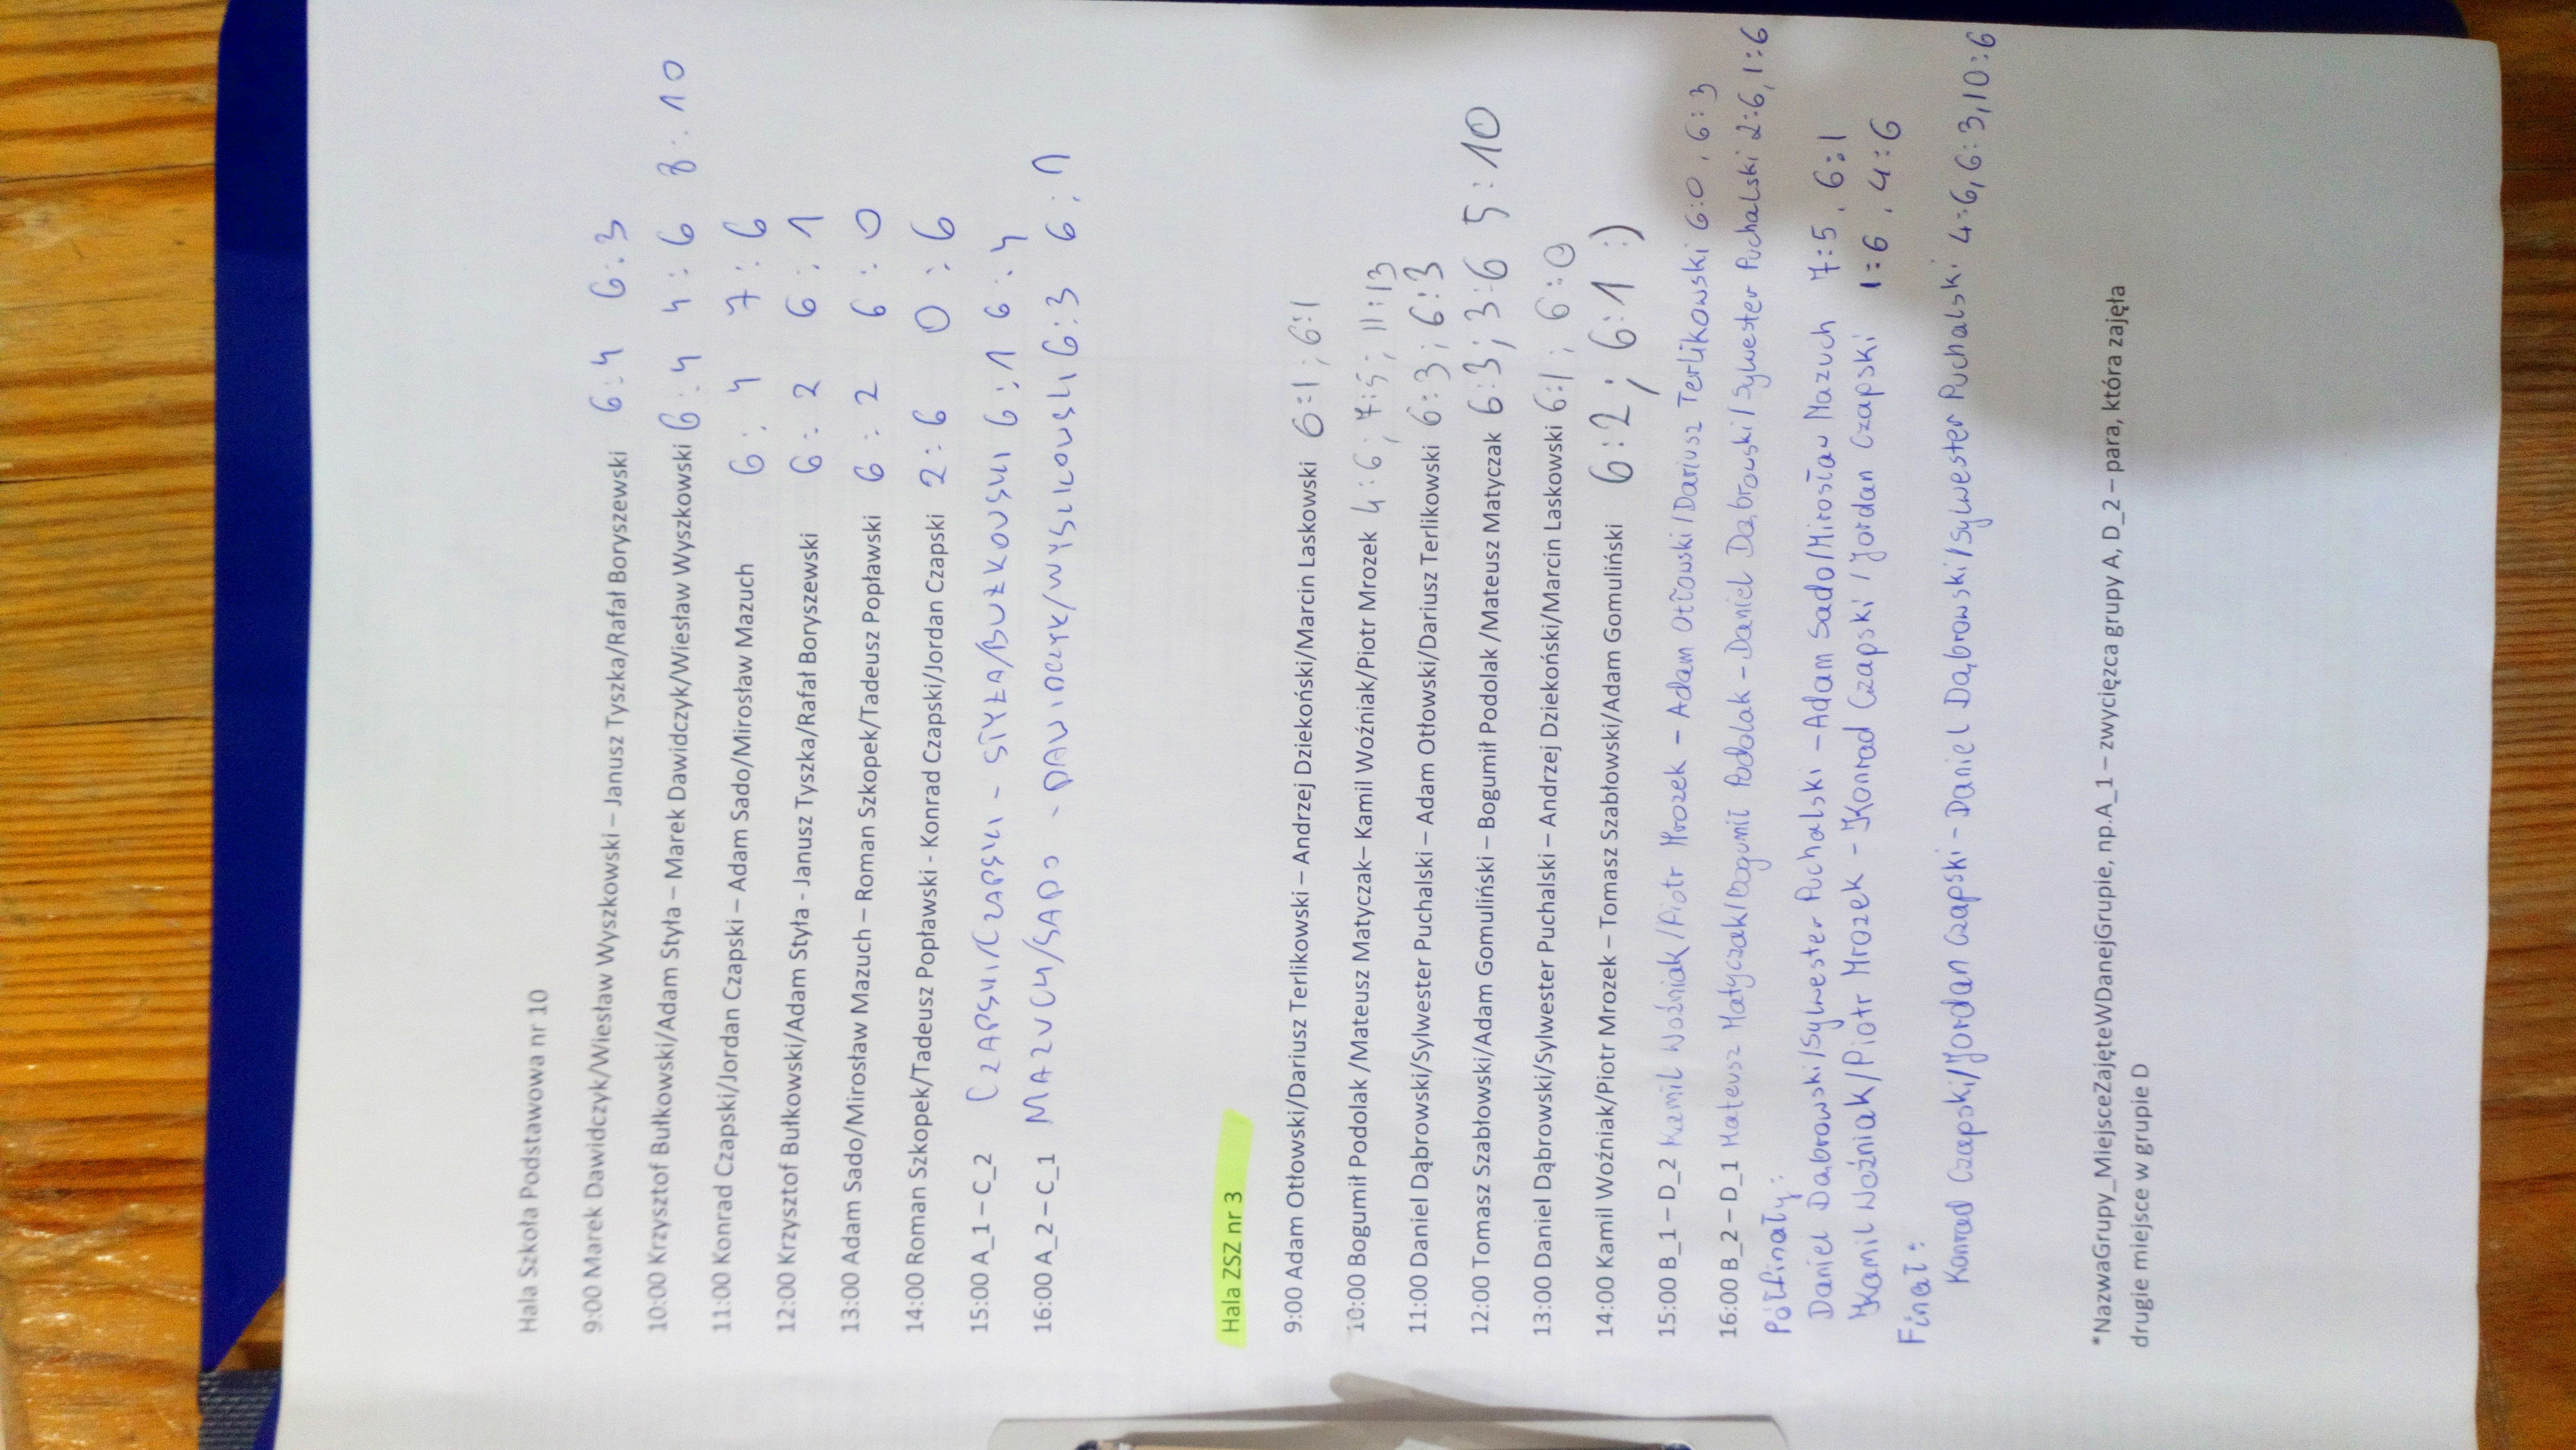 Hala Szkoła Podstawowa nr 10
9:00 Marek Dawidczyk/Wiesław Wyszkowski – Janusz Tyszka/Rafał Boryszewski 6:4 6:3
10:00 Krzysztof Bułkowski/Adam Styła – Marek Dawidczyk/Wiesław Wyszkowski 6:4 4:6 8:10
11:00 Konrad Czapski/Jordan Czapski – Adam Sado/Mirosław Mazuch 6:4 7:6
12:00 Krzysztof Bułkowski/Adam Styła - Janusz Tyszka/Rafał Boryszewski 6:2 6:1
13:00 Adam Sado/Mirosław Mazuch – Roman Szkopek/Tadeusz Popławski 6:2 6:0
14:00 Roman Szkopek/Tadeusz Popławski - Konrad Czapski/Jordan Czapski 2:6 0:6
15:00 A_1 – C_2 CZAPSKI/CZAPSKI - STYŁA/BUŁKOWSKI 6:1 6:4
16:00 A_2 – C_1 MAZUCH/SADO - DAWIDCZYK/WYSZKOWSKI 6:3 6:1
Hala ZSZ nr 3
9:00 Adam Otłowski/Dariusz Terlikowski – Andrzej Dziekoński/Marcin Laskowski 6:1; 6:1
10:00 Bogumił Podolak /Mateusz Matyczak– Kamil Woźniak/Piotr Mrozek 4:6; 7:5; 11:13
11:00 Daniel Dąbrowski/Sylwester Puchalski – Adam Otłowski/Dariusz Terlikowski 6:3; 6:3
12:00 Tomasz Szabłowski/Adam Gomuliński – Bogumił Podolak /Mateusz Matyczak 6:3; 3:6 5:10
13:00 Daniel Dąbrowski/Sylwester Puchalski – Andrzej Dziekoński/Marcin Laskowski 6:1; 6:0
14:00 Kamil Woźniak/Piotr Mrozek – Tomasz Szabłowski/Adam Gomuliński 6:2; 6:1 :)
15:00 B_1 – D_2 Kamil Woźniak/Piotr Mrozek - Adam Otłowski/Dariusz Terlikowski 6:0, 6:3
16:00 B_2 – D_1 Mateusz Matyczak/Bogumił Podolak - Daniel Dąbrowski/Sylwester Puchalski 2:6, 1:6
Półfinały:
Daniel Dąbrowski/Sylwester Puchalski - Adam Sado/Mirosław Mazuch 7:5, 6:1
Kamil Woźniak/Piotr Mrozek - Konrad Czapski/Jordan Czapski 1:6, 4:6
Finał:
Konrad Czapski/Jordan Czapski - Daniel Dąbrowski/Sylwester Puchalski 4:6, 6:3, 10:6
*NazwaGrupy_MiejsceZajęteWDanejGrupie, np.A_1 – zwycięzca grupy A, D_2 – para, która zajęła
drugie miejsce w grupie D